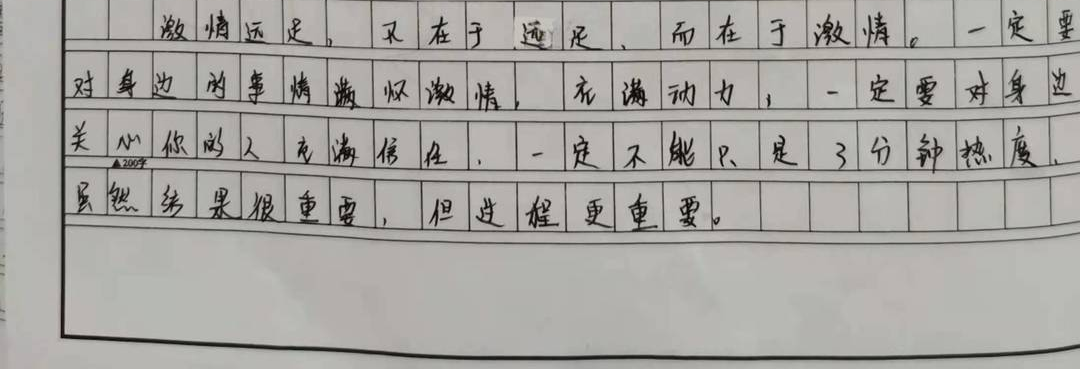 激情远足，不在于远足，而在于激情。一定要
对身边的事情满怀激情，充满动力，一定要对身边
关心你的人充满信任，一定不能只是3分钟热度，
▲200字
虽然结果很重要，但过程更重要。